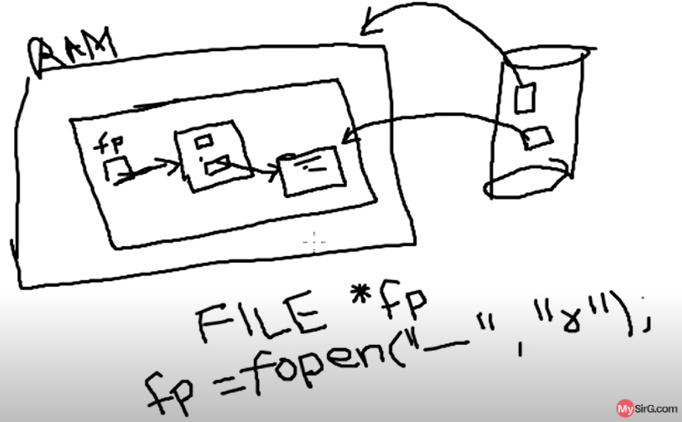 RAM
fp
FILE *fp
fp = fopen("—", "r");
MySirG.com